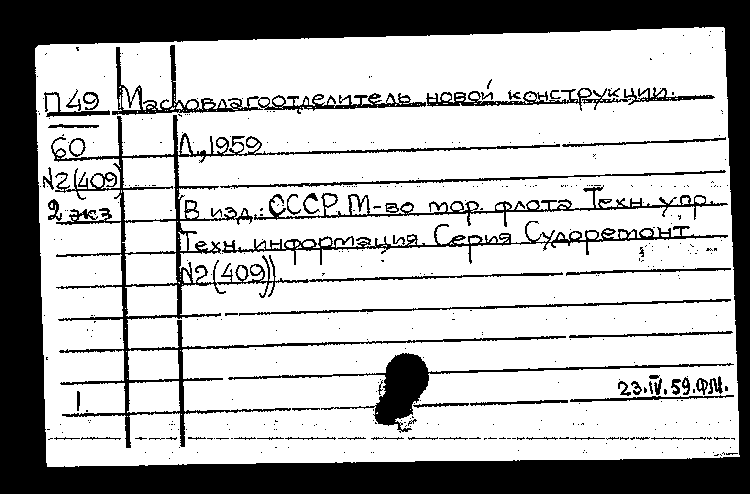 П49 Масловлагоотделитель новой конструкции.
60 Л., 1959
N2(409)
2 экз (В изд.: СССР. М-во мор. флота Техн. упр.
Техн. информация. Серия Судоремонт
N2(409))
1. 23.IV.59.ФМ.